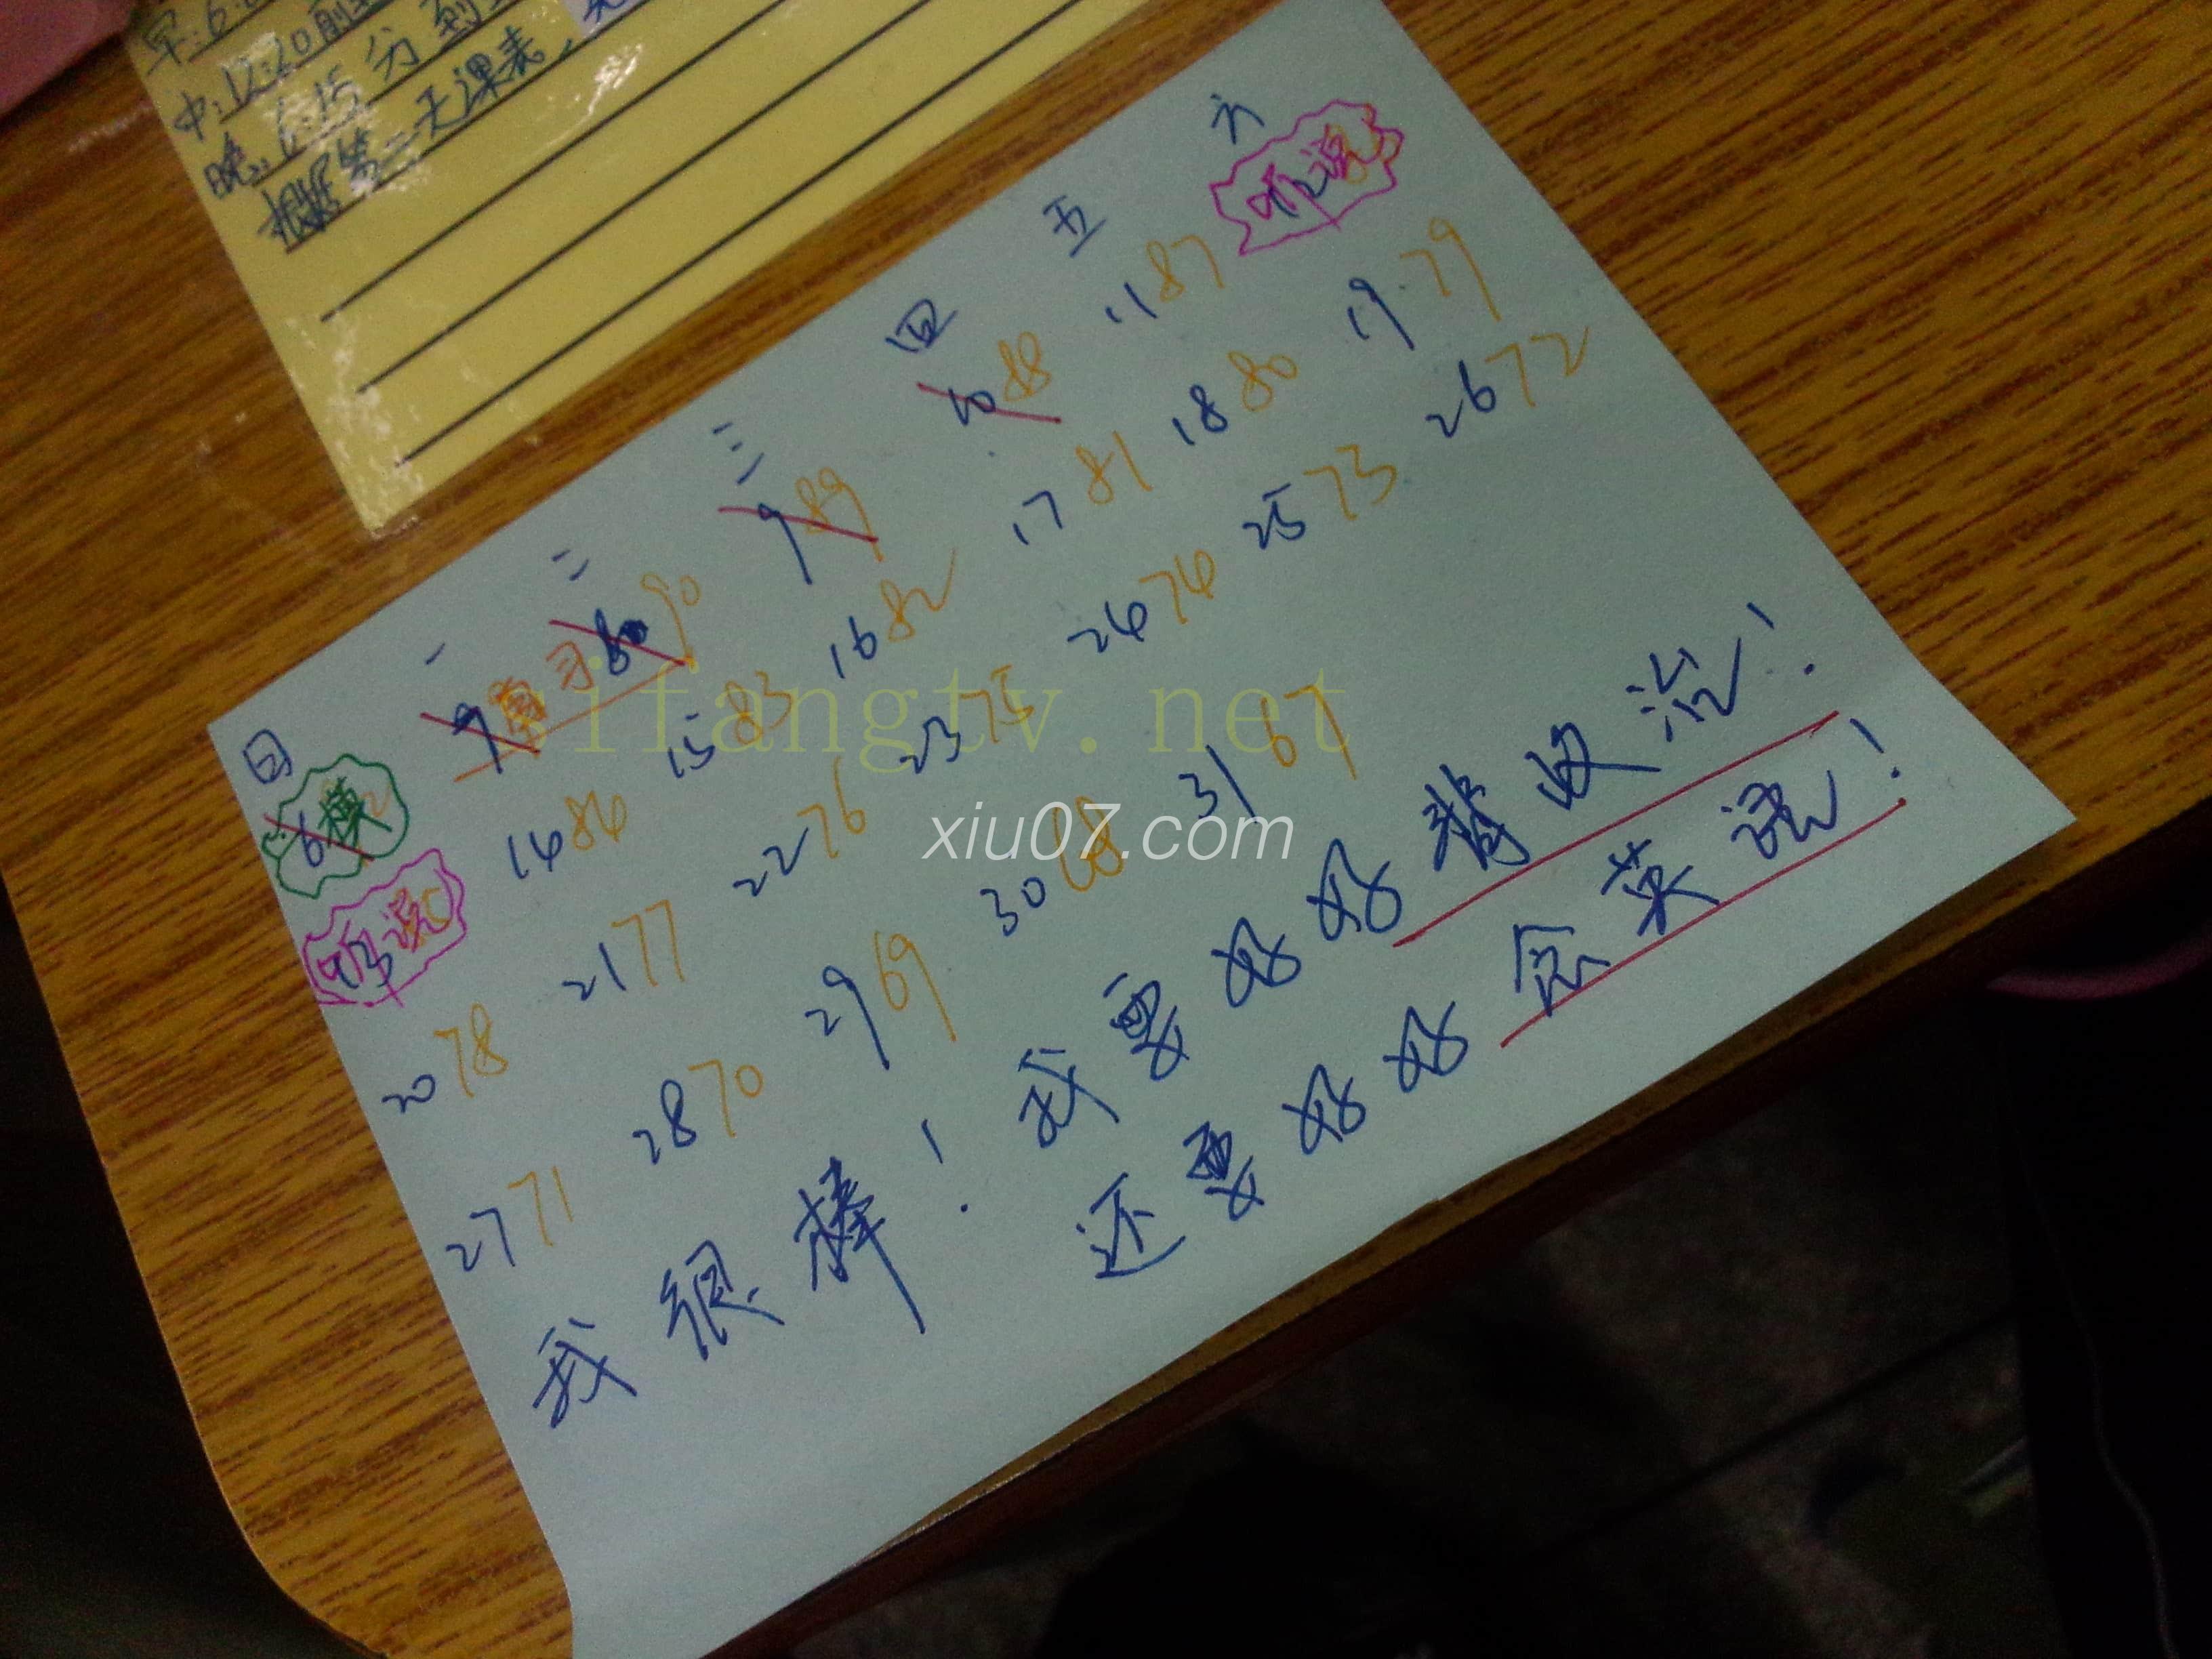 中:12:20前
晚:6:15分到
根据第二天课表,
日 一 二 三 四 五 六
6 模 7 复习 8 90 9 89 10 88 11 87 听说
听说 14 84 15 83 16 82 17 81 18 80 19 79
20 78 21 77 22 76 23 75 24 74 25 73 26 72
27 71 28 70 29 69 30 68 31 67
我很棒!我要好好背政治!
还要好好念英语!
sifangtv.net
xiu07.com